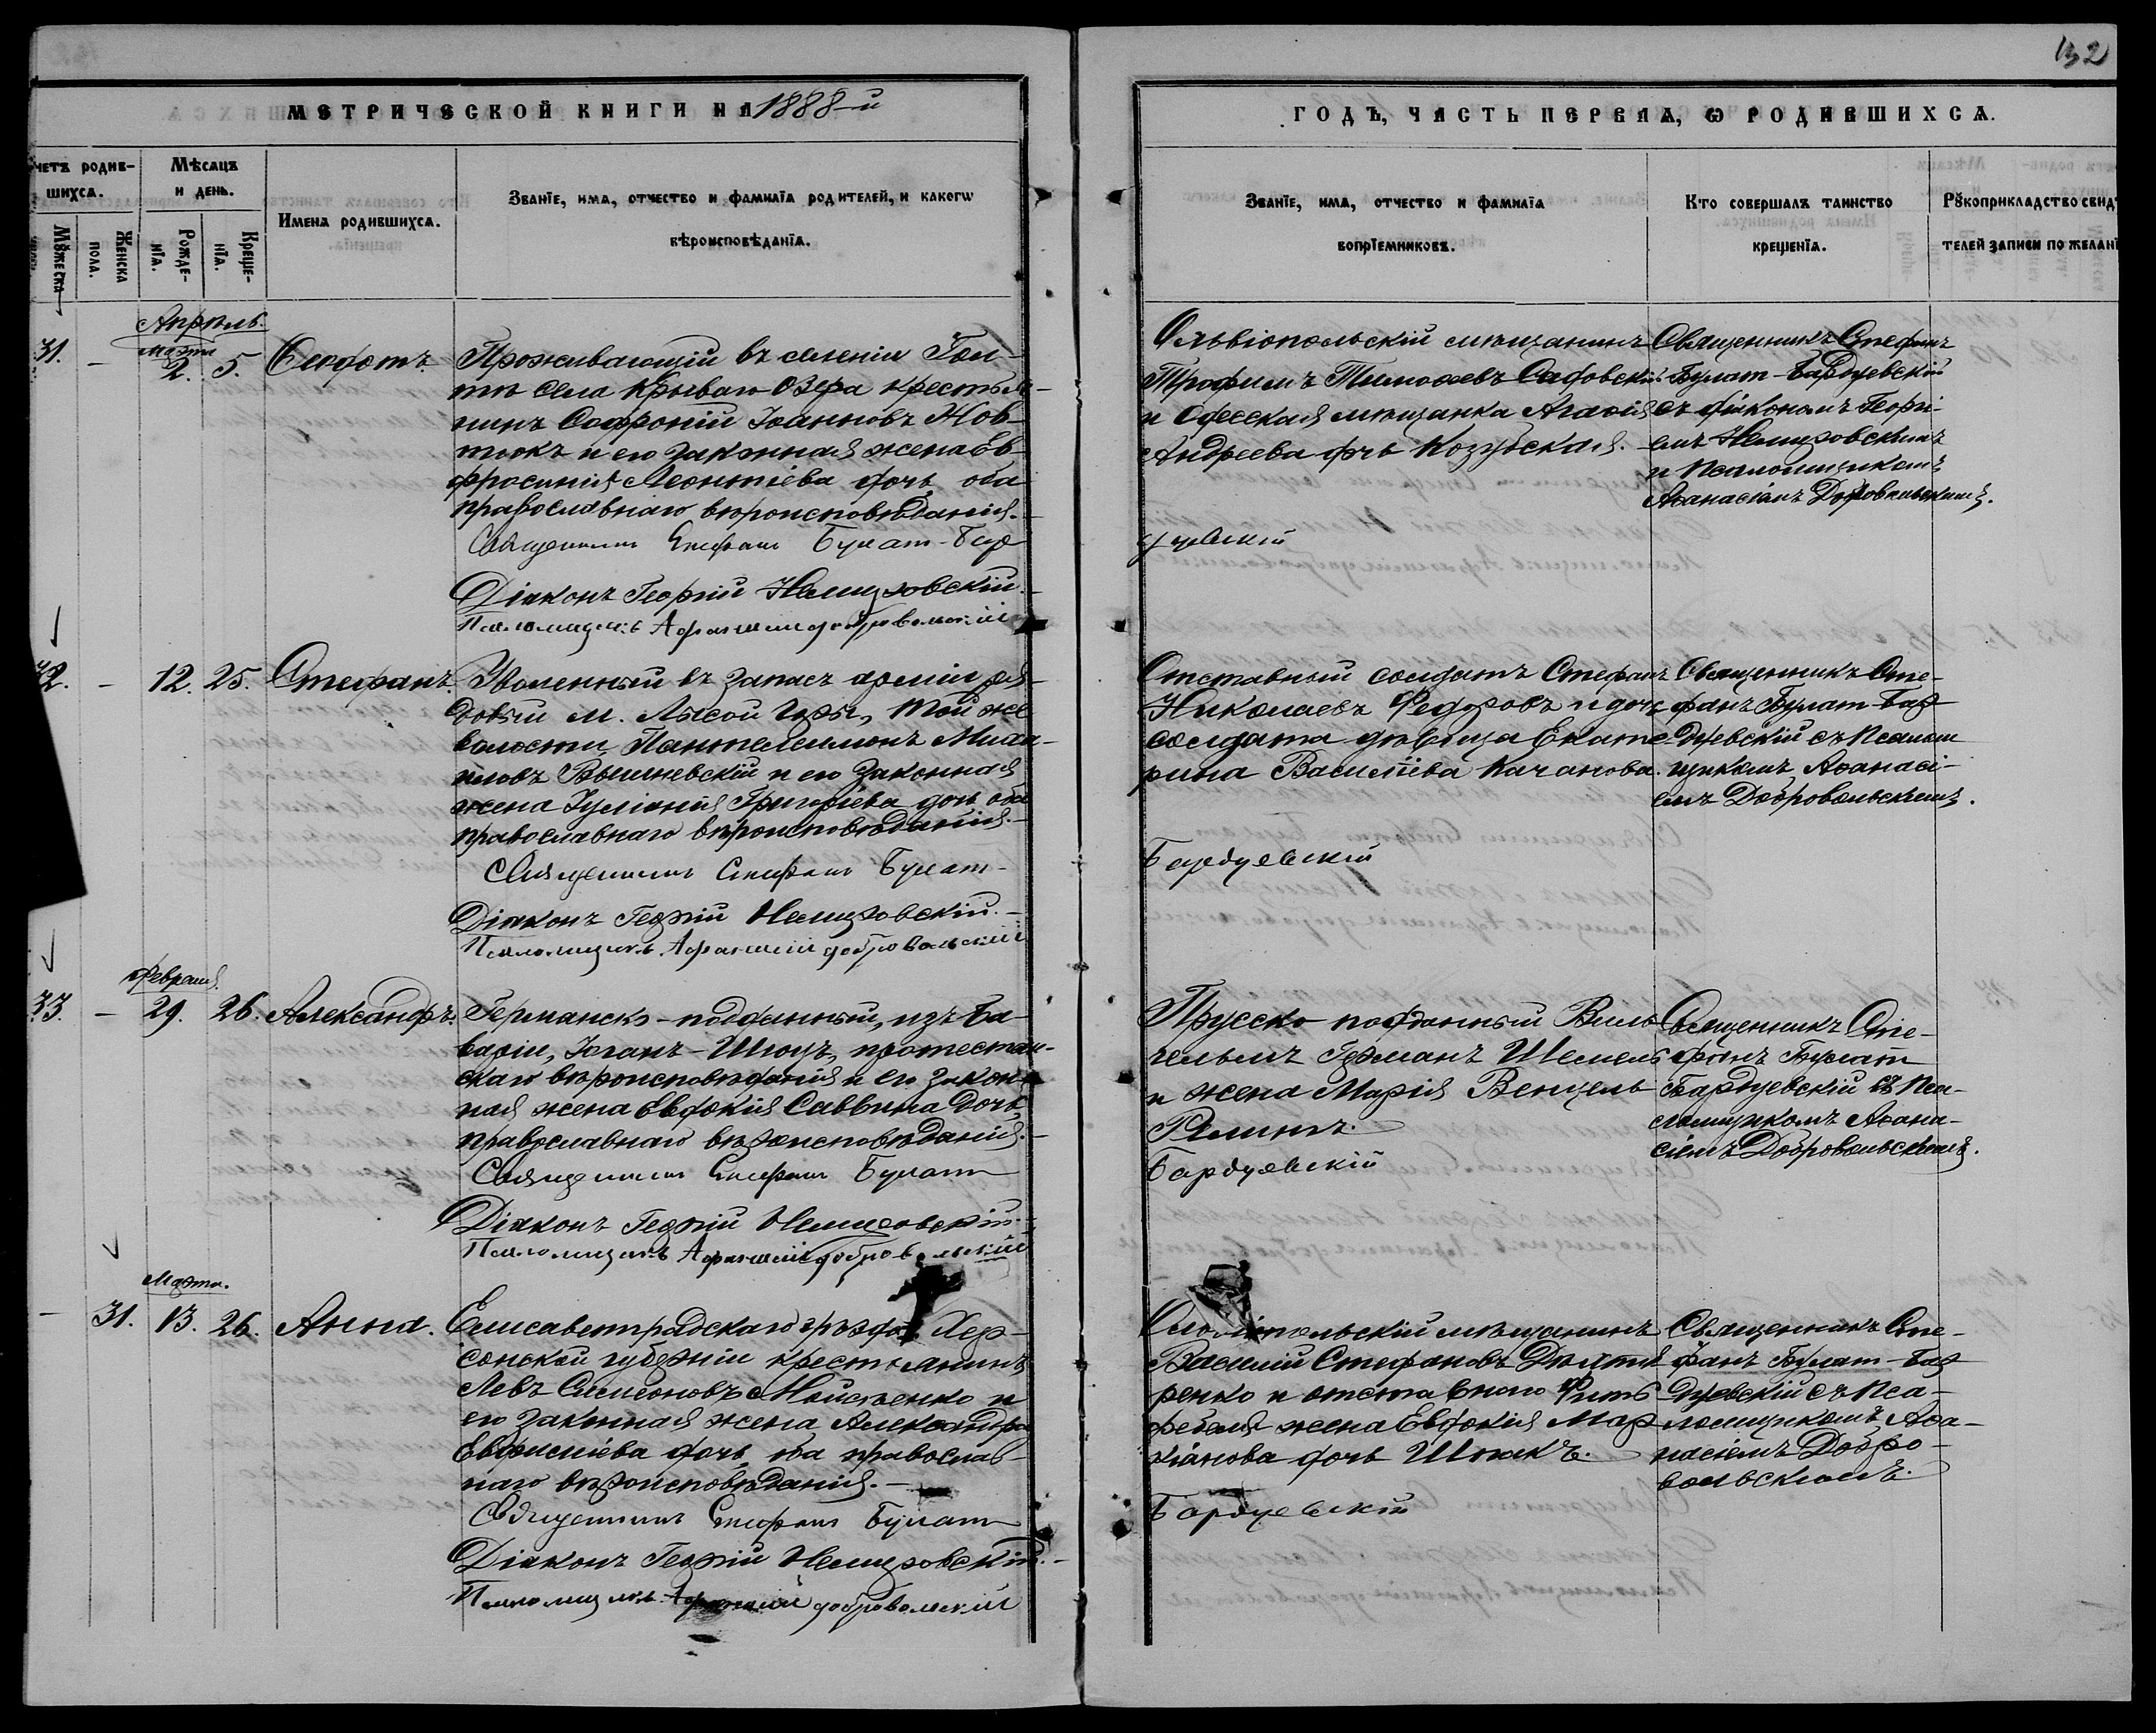 132
МЕТРИЧЕСКОЙ КНИГИ НА 1888-й
ГОДЪ, ЧАСТЬ ПЕРВАЯ, Ѡ РОДИВШИХСѦ.
четъ родив-
шихсѧ.
Мѣсѧцъ
и день.
Имена родившихсѧ.
Званїе, имѧ, отчество и фамилїѧ родителей, и какогѡ
вѣроисповѣданїѧ.
Мꙋжеска
Женска
пола.
Рожде-
нїѧ.
Креще-
нїѧ.
Званїе, имѧ, отчество и фамилїѧ
вопрїемниковъ.
Кто совершалъ таинство
крещенїѧ.
Рꙋкоприкладство свид
телей записи по желанї
Апрѣль.
Марта
31. - 2. 5. Ѳеодотъ.
Проживающій въ селеніи
села Криваго Озера крестья-
нинъ Софроній Іоанновъ Жов-
токъ и его законная жена Ев-
фросинія Леонтіева дочь, оба
православнаго вѣроисповѣданія.
Священникъ Стефанъ Булат-Бар
Діаконъ Георгій Немировскій.
Псаломщикъ Афанасій Добровольскій
Ольвіопольскій мѣщанинъ
Трофимъ Тимоѳеевъ Садовскій
и Одесская мѣщанка Агаѳія
Андреева дочь Козубская.
дуевскій
Священникъ Стефанъ
Булат-Бардуевскій
съ діакономъ Георгі-
емъ Немировскимъ
и Псаломщикомъ
Аѳанасіемъ Добровольскимъ.
32. - 12. 25. Стефанъ.
Уволенный въ запасъ арміи ря-
довый м. Лысой Горы, той же
волости Пантелеимонъ Миха-
иловъ Вышневскій и его законная
жена Іуліанія Григоріева дочь оба
православнаго вѣроисповѣданія.
Священникъ Стефанъ Булат-
Діаконъ Георгій Немировскій.
Псаломщикъ Афанасій Добровольскій
Отставный солдатъ Стефанъ
Николаевъ Федоровъ и дочь
солдата дѣвица Екате-
рина Василіева Качанова.
Бардуевскій
Священникъ Сте-
фанъ Булат-Бар-
дуевскій съ Псалом
щикомъ Аѳанасі-
емъ Добровольскимъ.
Февраля.
33. - 29. 26. Александръ.
Германско-подданный, изъ Ба-
варіи, Іоганъ-Шюцъ, протестан-
скаго вѣроисповѣданія и его закон-
ная жена Евдокія Саввина дочь,
православнаго вѣроисповѣданія.
Священникъ Стефанъ Булатъ
Діаконъ Георгій Немировскій.
Псаломщикъ Афанасій Добровольскій
Прусско подданный Виль
гельмъ Германъ Шемель
и жена Марія Венцель
Релингъ.
Бардуевскій
Священникъ Сте-
фанъ Булат
Бардуевскій съ Пса-
ломщикомъ Аѳана-
сіемъ Добровольскимъ.
Марта.
- 31. 13. 26. Анна.
Елисаветградскаго уѣзда Хер-
сонской губерніи крестьянинъ
Левъ Симеоновъ Мойсѣенко и
его законная жена Александра
Евфиміева дочь, оба православ-
наго вѣроисповѣданія.-
Священникъ Стефанъ Булатъ
Діаконъ Георгій Немировскій.
Псаломщикъ Афанасій Добровольскій
Ольвіопольскій мѣщанинъ
Василій Стефановъ
ренко и отставного Фельд
фебеля жена Евдокія Мар
кіанова дочь Шпакъ.
Бардуевскій
Священникъ Сте-
фанъ Булат-Бар
дуевскій съ Пса-
ломщикомъ Аѳа-
насіемъ Добро-
вольскимъ.